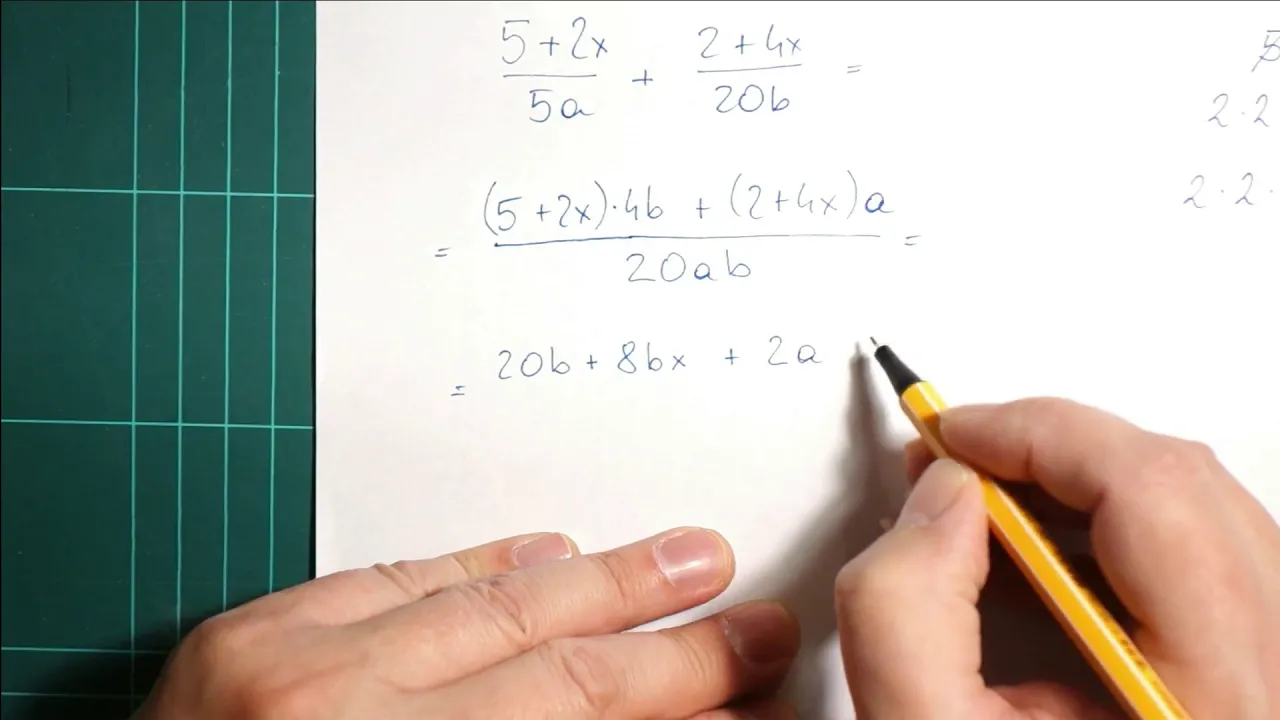 5+2x / 5a + 2+4x / 20b =
= (5+2x)·4b + (2+4x)a / 20ab =
= 20b + 8bx + 2a
5
2·2
2·2·